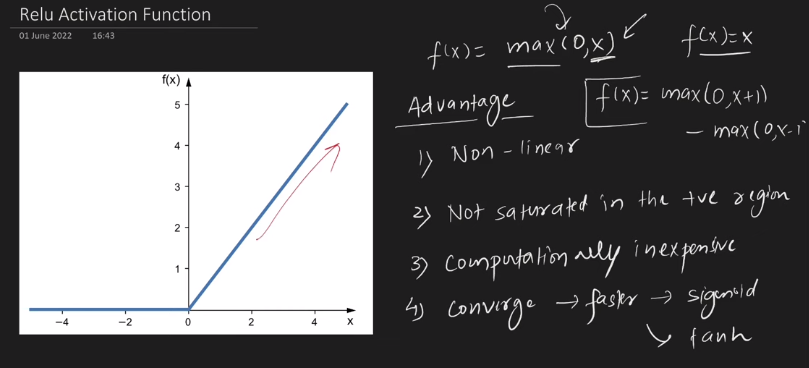 Relu Activation Function
01 June 2022 16:43
f(x)= max(0,x) f(x)=x
Advantage
f(x)= max(0,x+1)
- max(0,x-1
1) Non-linear
2) Not saturated in the +ve region
3) Computationally inexpensive
4) Converge → faster → sigmoid
↘ tanh
f(x)
5
4
3
2
1
-4 -2 0 2 4 x